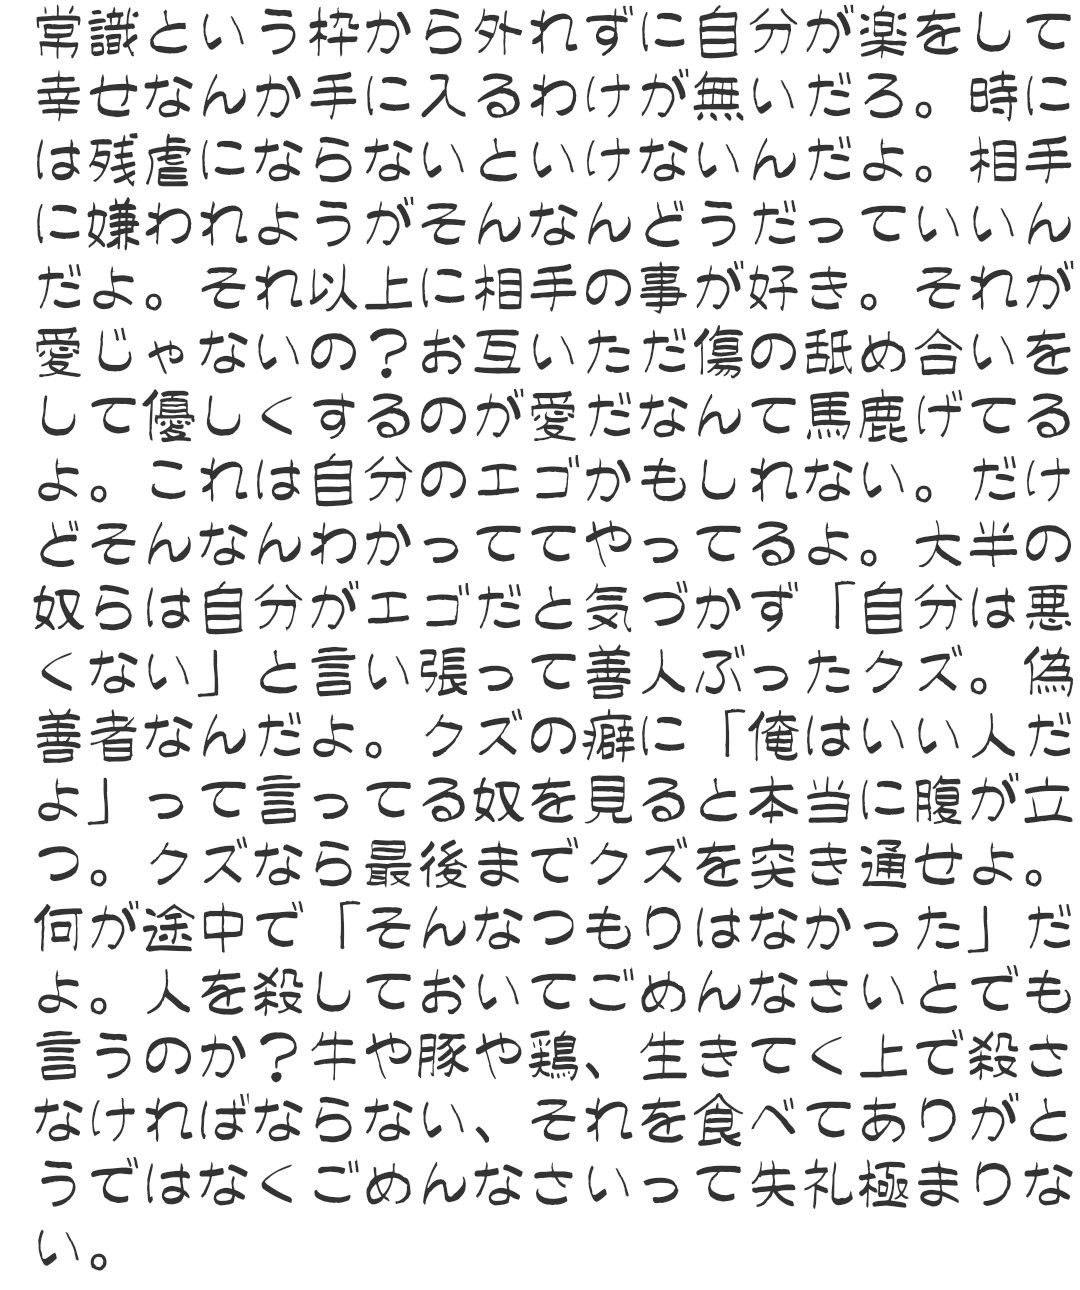 常識という枠から外れずに自分が楽をして
幸せなんか手に入るわけが無いだろ。時に
は残虐にならないといけないんだよ。相手
に嫌われようがそんなんどうだっていいん
だよ。それ以上に相手の事が好き。それが
愛じゃないの？お互いただ傷の舐め合いを
して優しくするのが愛だなんて馬鹿げてる
よ。これは自分のエゴかもしれない。だけ
どそんなんわかっててやってるよ。大半の
奴らは自分がエゴだと気づかず「自分は悪
くない」と言い張って善人ぶったクズ。偽
善者なんだよ。クズの癖に「俺はいい人だ
よ」って言ってる奴を見ると本当に腹が立
つ。クズなら最後までクズを突き通せよ。
何が途中で「そんなつもりはなかった」だ
よ。人を殺しておいてごめんなさいとでも
言うのか？牛や豚や鶏、生きてく上で殺さ
なければならない、それを食べてありがと
うではなくごめんなさいって失礼極まりな
い。